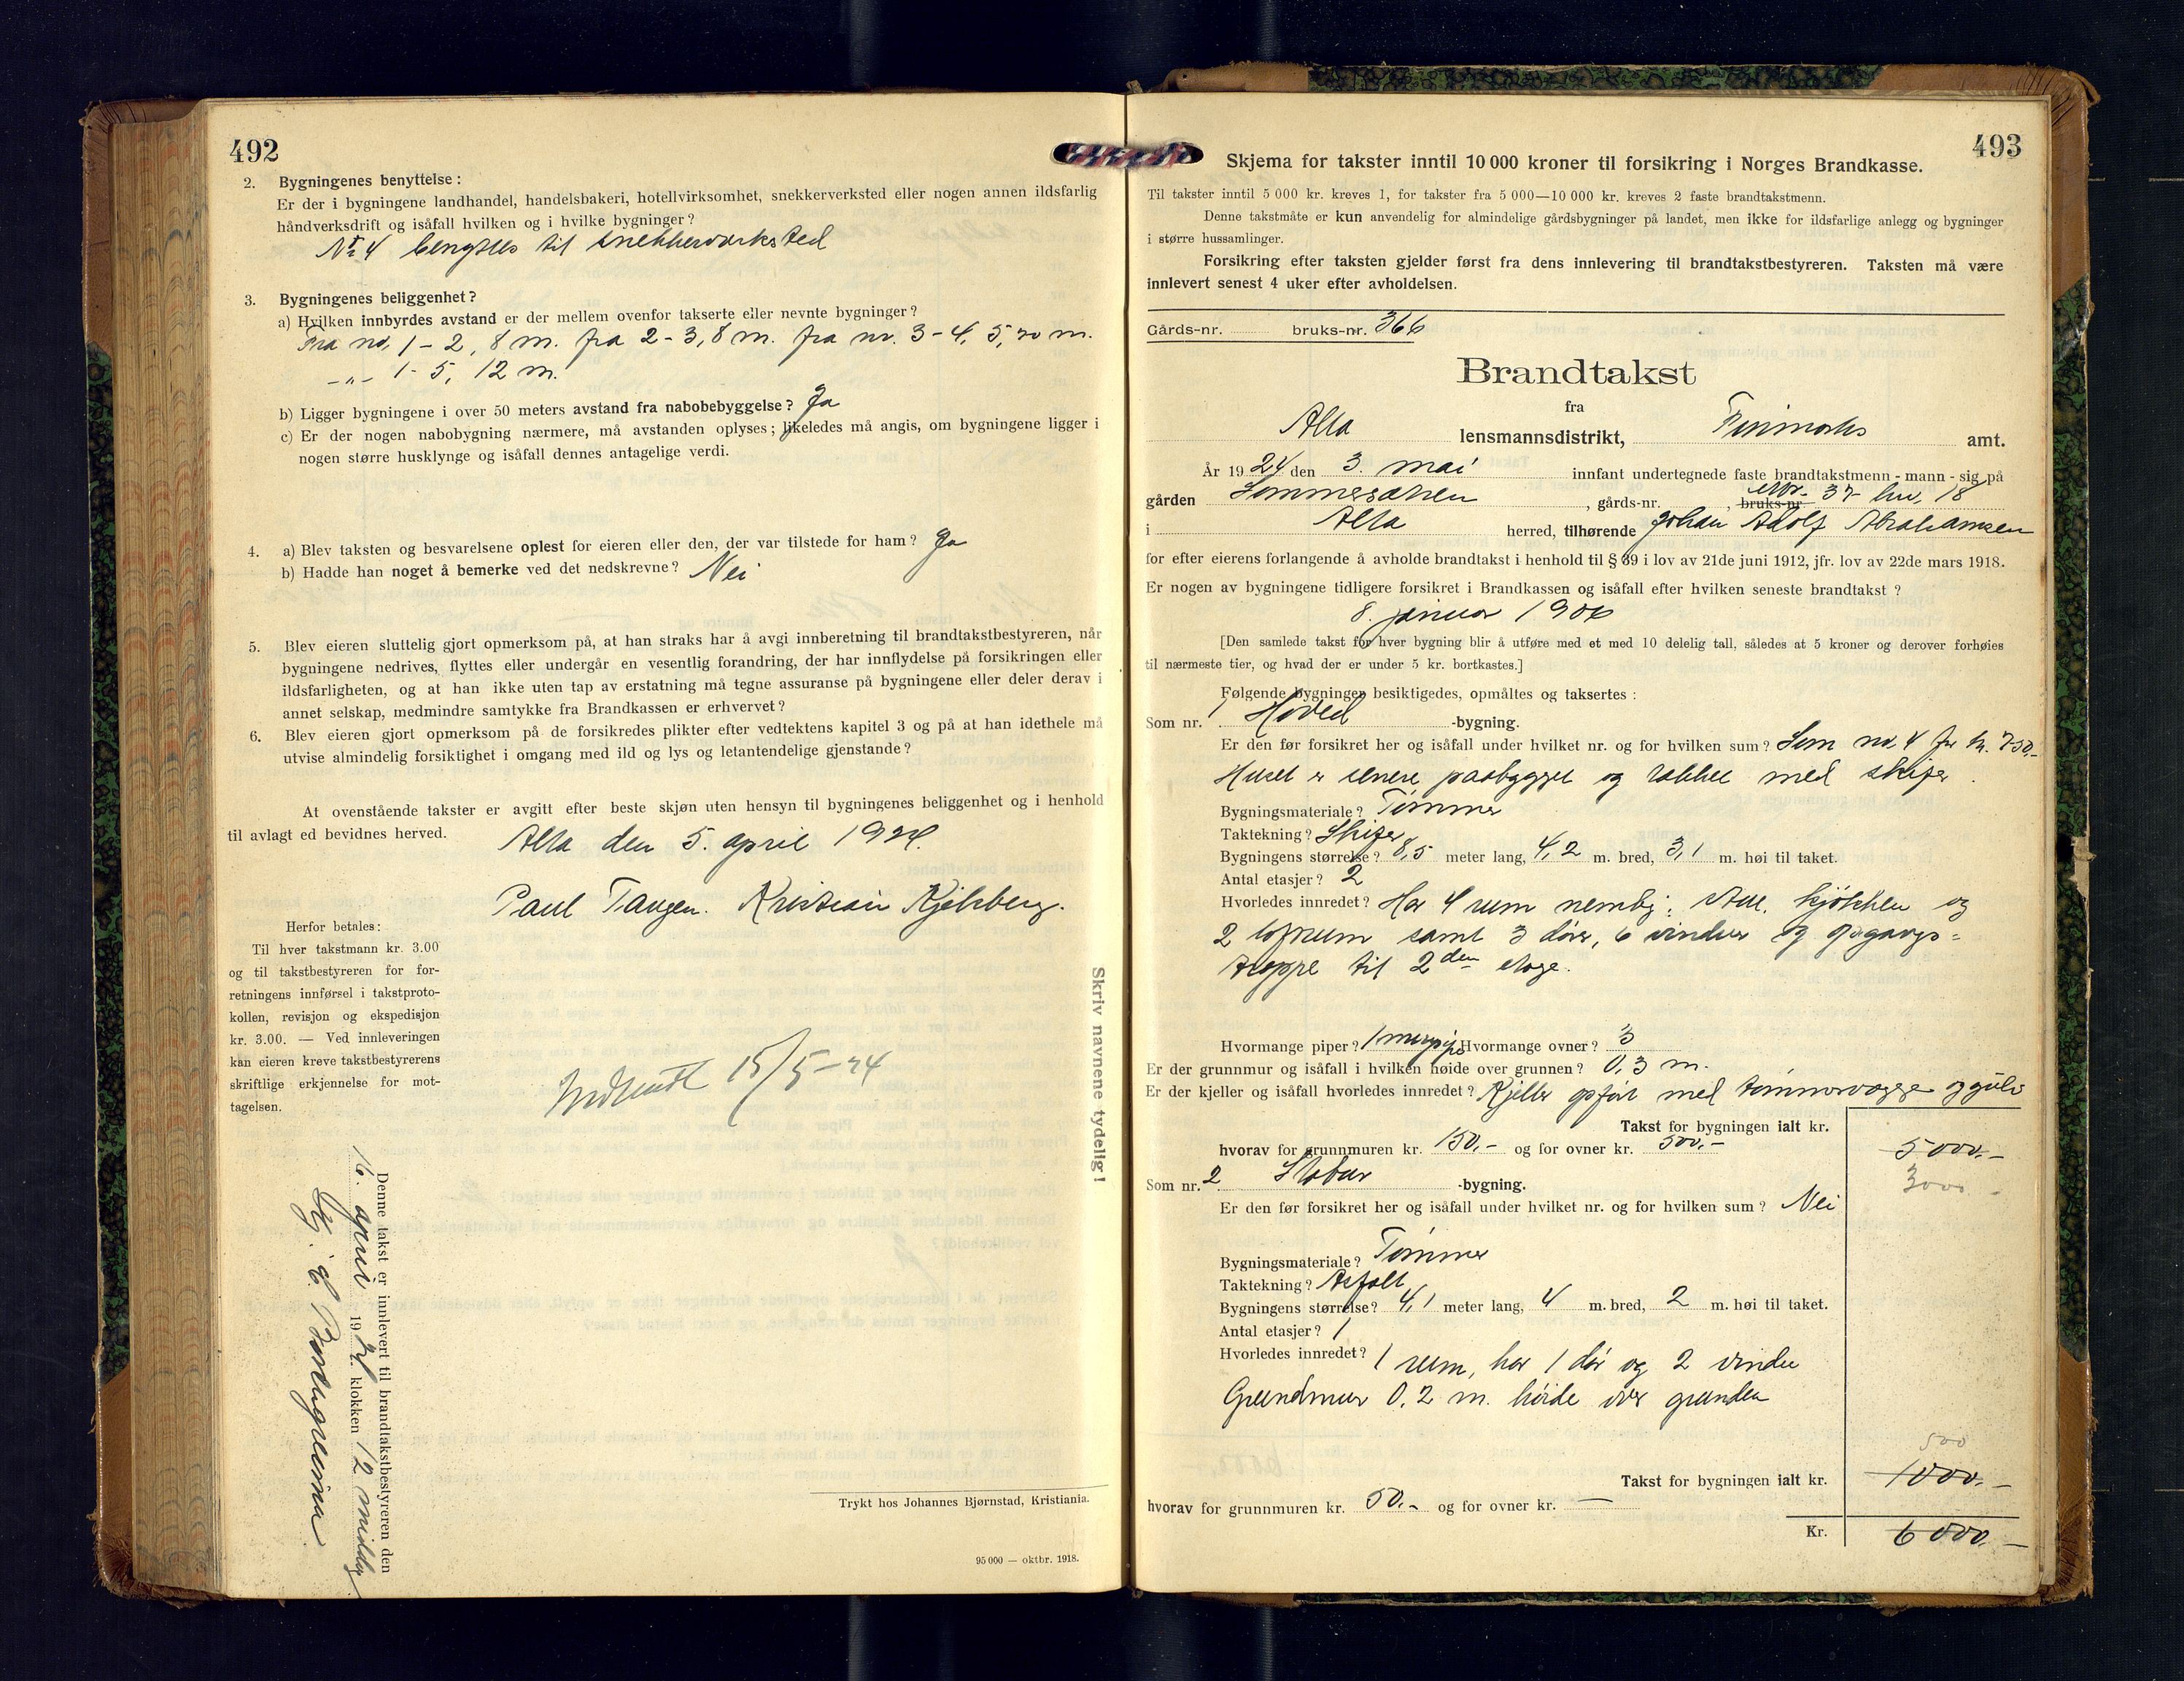 492
2. Bygningenes benyttelse:
Er der i bygningene landhandel, handelsbakeri, hotellvirksomhet, snekkerverksted eller nogen annen ildsfarlig
håndverksdrift og isåfall hvilken og i hvilke bygninger?
Nr 4 benyttes til snekkerverksted
3. Bygningenes beliggenhet?
a) Hvilken innbyrdes avstand er der mellem ovenfor takserte eller nevnte bygninger?
Fra no. 1-2, 8 m. fra 2-3, 8 m. fra nr. 3-4, 5,20 m.
-"- 1-5, 12 m.
b) Ligger bygningene i over 50 meters avstand fra nabobebyggelse? Ja
c) Er der nogen nabobygning nærmere, må avstanden oplyses; likeledes må angis, om bygningene ligger i
nogen større husklynge og isåfall dennes antagelige verdi.
4. a) Blev taksten og besvarelsene oplest for eieren eller den, der var tilstede for ham? Ja
b) Hadde han noget å bemerke ved det nedskrevne? Nei
5. Blev eieren sluttelig gjort opmerksom på, at han straks har å avgi innberetning til brandtakstbestyreren, når
bygningene nedrives, flyttes eller undergår en vesentlig forandring, der har innflydelse på forsikringen eller
ildsfarligheten, og at han ikke uten tap av erstatning må tegne assuranse på bygningene eller deler derav i
annet selskap, medmindre samtykke fra Brandkassen er erhvervet?
6. Blev eieren gjort opmerksom på de forsikredes plikter efter vedtektens kapitel 3 og på at han idethele må
utvise almindelig forsiktighet i omgang med ild og lys og letantendelige gjenstande?
At ovenstående takster er avgitt efter beste skjøn uten hensyn til bygningenes beliggenhet og i henhold
til avlagt ed bevidnes herved.
Alta den 5. april 1924.
Paul Tangen. Kristian Kjelsberg.
Herfor betales:
Til hver takstmann kr. 3.00
og til takstbestyreren for for-
retningens innførsel i takstproto-
kollen, revisjon og ekspedisjon
kr. 3.00. — Ved innleveringen
kan eieren kreve takstbestyrerens
skriftlige erkjennelse for mot-
tagelsen.
Indsendt 15/5-24
Skriv navnene tydelig!
Denne takst er innlevert til brandtakstbestyreren den
16. april 1924 klokken 12 middag
Trykt hos Johannes Bjørnstad, Kristiania.
95 000 — oktbr. 1918.
493
Skjema for takster inntil 10 000 kroner til forsikring i Norges Brandkasse.
Til takster inntil 5 000 kr. kreves 1, for takster fra 5 000—10 000 kr. kreves 2 faste brandtakstmenn.
Denne takstmåte er kun anvendelig for almindelige gårdsbygninger på landet, men ikke for ildsfarlige anlegg og bygninger
i større hussamlinger.
Forsikring efter taksten gjelder først fra dens innlevering til brandtakstbestyreren. Taksten må være
innlevert senest 4 uker efter avholdelsen.
Gårds-nr. bruks-nr. 366
Brandtakst
fra
Alta lensmannsdistrikt, Finmarks amt.
År 1924 den 3. mai innfant undertegnede faste brandtakstmenn - mann - sig på
gården , gårds-nr. , bruks-nr. mnr. 37 lnr. 18
i Alta herred, tilhørende Johan Adolf Abrahamsen
for efter eierens forlangende å avholde brandtakst i henhold til § 39 i lov av 21de juni 1912, jfr. lov av 22de mars 1918.
Er nogen av bygningene tidligere forsikret i Brandkassen og isåfall efter hvilken seneste brandtakst?
8. januar 1906
[Den samlede takst for hver bygning blir å utføre med et med 10 delelig tall, således at 5 kroner og derover forhøies
til nærmeste tier, og hvad der er under 5 kr. bortkastes.]
Følgende bygninger besiktigedes, opmåltes og taksertes:
Som nr. 1 Hoved -bygning.
Er den før forsikret her og isåfall under hvilket nr. og for hvilken sum? Som no. 4 for kr. 750,-
Huset er senere paabygget og tækket med skifer.
Bygningsmateriale? Tømmer
Taktekning? Skifer
Bygningens størrelse? 8,5 meter lang, 4,2 m. bred, 3,1 m. høi til taket.
Antal etasjer? 2
Hvorledes innredet? Har 4 rum nemlig: stue, kjøkken og
2 loftrum samt 3 dører, 6 vinduer og opgangs-
trappe til 2den etage.
Hvormange piper? 1 murpipe Hvormange ovner? 3
Er der grunnmur og isåfall i hvilken høide over grunnen? 0,3 m.
Er der kjeller og isåfall hvorledes innredet? Kjeller opført med tømmervægge og gulv
Takst for bygningen ialt kr. 5000.-
hvorav for grunnmuren kr. 150.- og for ovner kr. 500.-
3000.-
Som nr. 2 Stabur -bygning.
Er den før forsikret her og isåfall under hvilket nr. og for hvilken sum? Nei
Bygningsmateriale? Tømmer
Taktekning? Asfalt
Bygningens størrelse? 4,1 meter lang, 4 m. bred, 2 m. høi til taket.
Antal etasjer? 1
Hvorledes innredet? 1 rum, har 1 dør og 2 vindu
Grundmur 0,2 m. høide over grunden
500
Takst for bygningen ialt kr. 1000.-
hvorav for grunnmuren kr. 50.- og for ovner kr. —
Kr. 6000.-